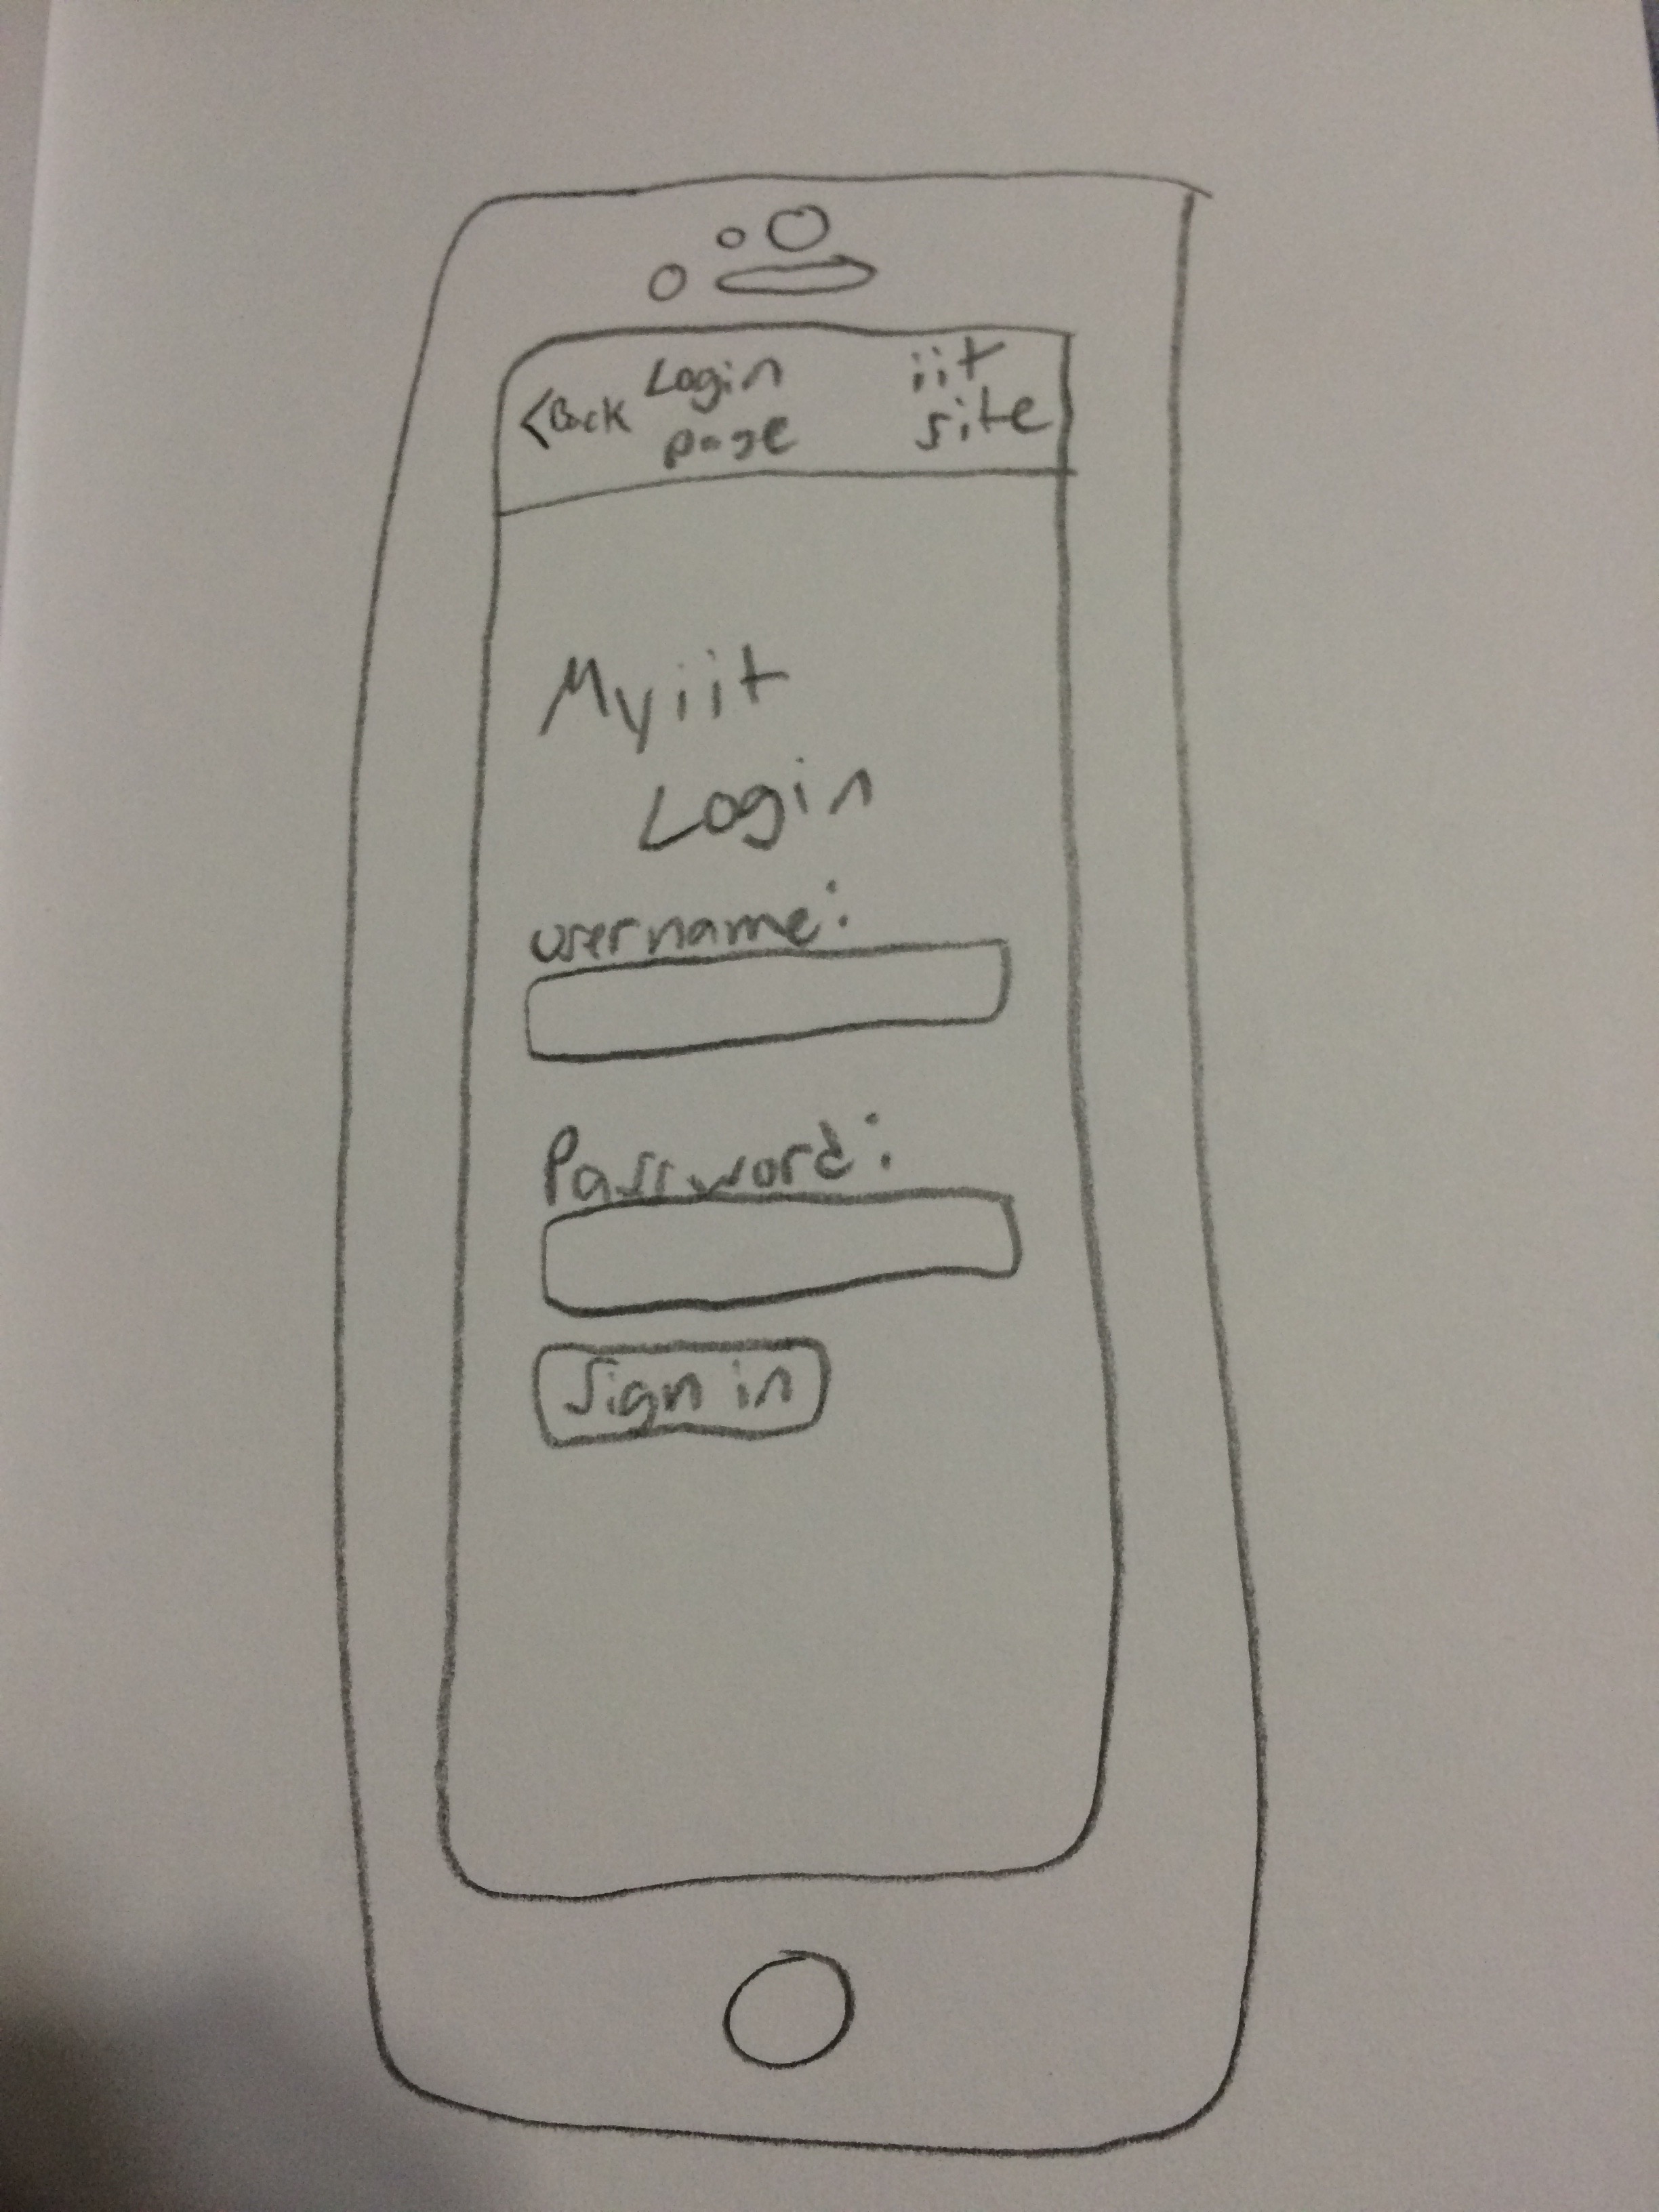 <Back Login page iit site
Myiit
Login
username:
Password:
Sign in